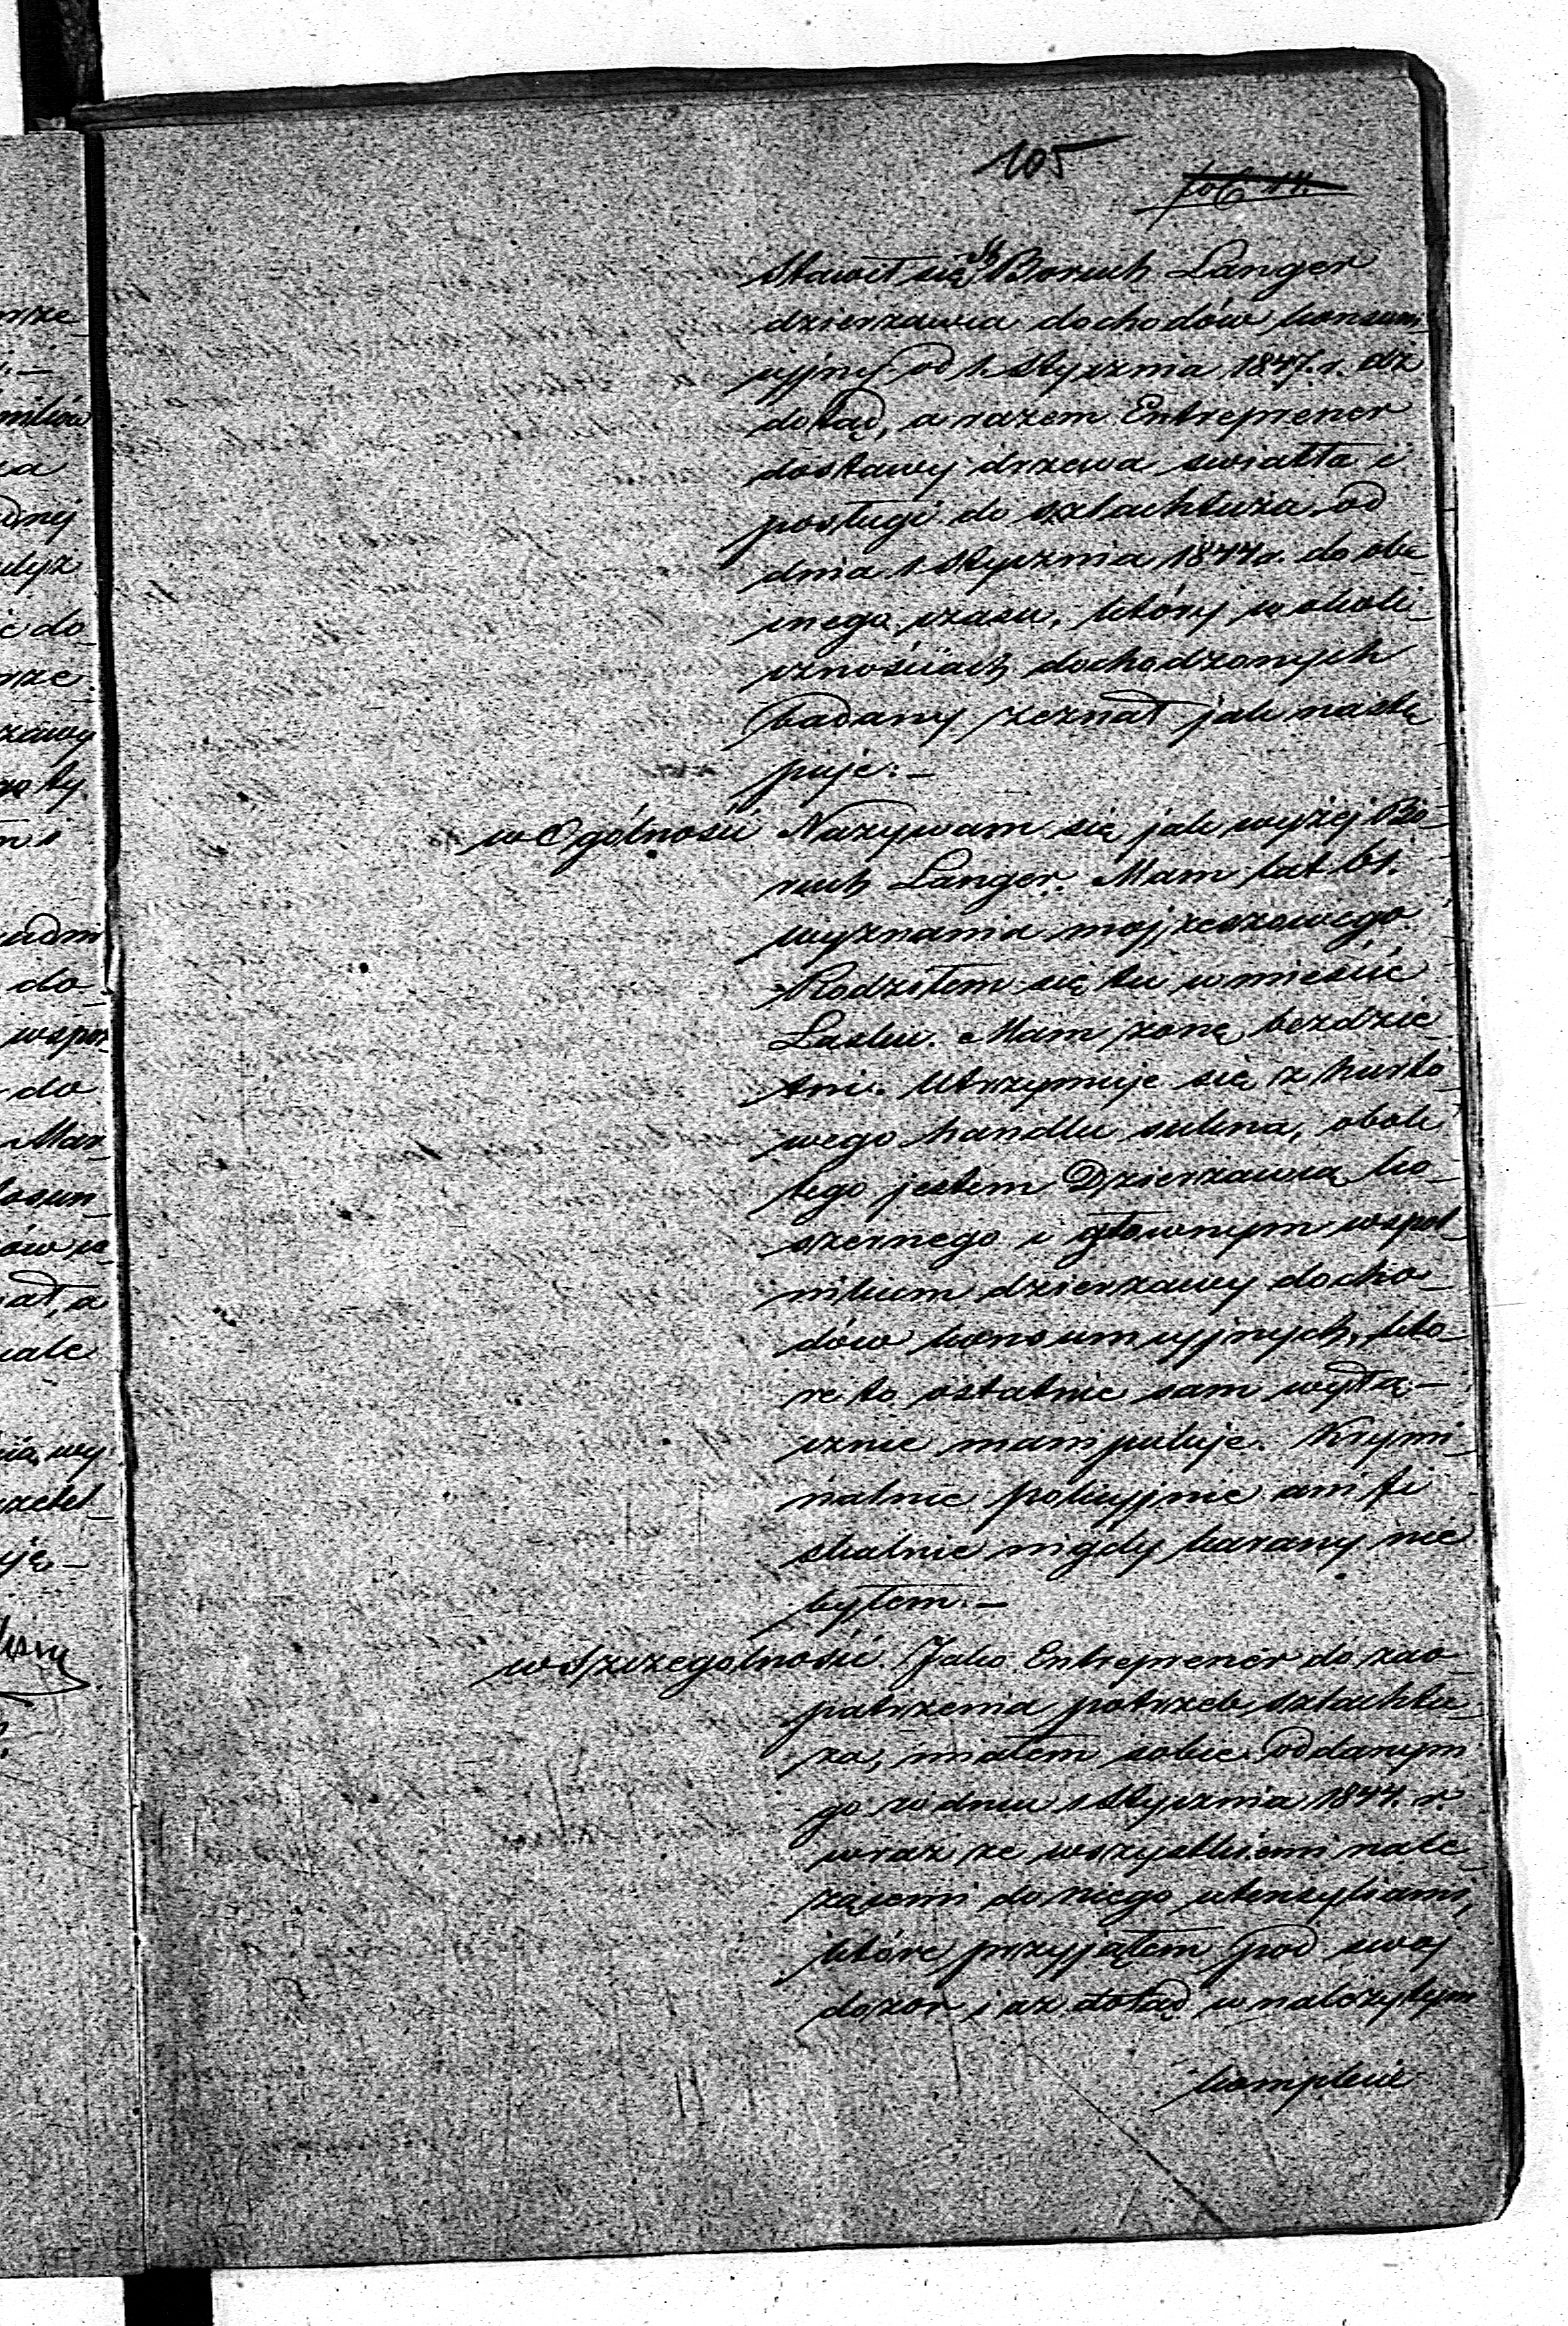 105
Stawił się St. Boruch Langer
dzierzawca dochodów konsum
cyjnych od 1. Stycznia 1847. r. aż
dotąd, a razem Entreprener
dostawy drzewa swiatła i
posługi do szlachtuza od
dnia 1. Stycznia 1844 r. do obe_
cnego czasu, który w okoli_
cznościach dochodzonych
badany zeznał jak nastę_
puje:_
w Ogólności Nazywam się jak wyżej Bo_
ruch Langer. Mam lat 61.
wyznania mojzeszowego.
Rodziłem się tu w mieście
Lasku. Mam zonę bezdzie_
tni. Utrzymuje się z hurto_
wego handlu sukna, obok
tego jestem Dzierzawcą ko_
szernego i głownym wspol_
nikiem dzierzawy docho_
dów konsumcyjnych, kto_
re to ostatnie sam wyłą_
cznie manipuluje. Krymi_
nalnie policyjnie ani fi
skalnie nigdy karany nie
byłem._
w Szczegolności. Jako Entreprener do zao_
patrzenia potrzeb szlachtu_
za, miałem sobie oddanym
go zodniu 1 Stycznia 1844. r.
wraz ze wszystkiemi nale_
zącemi do niego utensyliami,
które przyjąłem pod swoj
dozor i az dotąd w nalezytym
komplecie